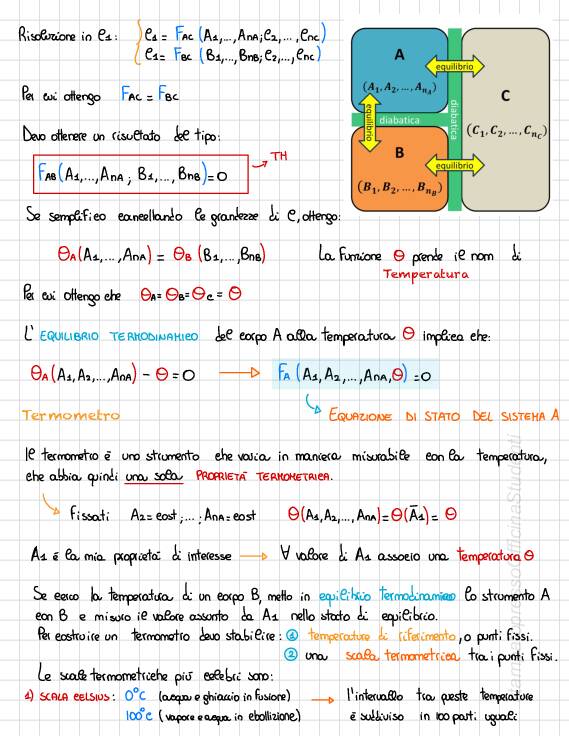 Risoluzione in C1: C1 = FAC (A1,...,AnA; C2,...,CnC)
C1 = FBC (B1,...,BnB; C2,...,CnC)
Per cui ottengo FAC = FBC
Devo ottenere un risultato del tipo:
FAB (A1,...,AnA ; B1,..., BnB) = 0 → TH
A
equilibrio
(A1, A2, ..., AnA)
C
diabatica
equilibrio
diabatica
(C1, C2, ..., CnC)
B
equilibrio
(B1, B2, ..., BnB)
Se semplifico cancellando le grandezze di C, ottengo:
ΘA (A1,..., AnA) = ΘB (B1,..., BnB) La Funzione Θ prende il nom di
Temperatura
Per cui ottengo che ΘA = ΘB = ΘC = Θ
L' EQUILIBRIO TERMODINAMICO del corpo A alla temperatura Θ implica che:
ΘA (A1, A2,..., AnA) - Θ = 0 → FA (A1, A2,..., AnA, Θ) = 0
EQUAZIONE DI STATO DEL SISTEMA A
Termometro
Il termometro è uno strumento che varia in maniera misurabile con la temperatura,
che abbia quindi una sola PROPRIETÀ TERMOMETRICA.
Fissati A2 = cost ; ... ; AnA = cost Θ(A1, A2,..., AnA) = Θ(Ā1) = Θ
A1 è la mia proprietà di interesse → ∀ valore di A1 associo una temperatura Θ
Se cerco la temperatura di un corpo B, metto in equilibrio termodinamico lo strumento A
con B e misuro il valore assunto da A1 nello stato di equilibrio.
Per costruire un termometro devo stabilire: ① temperature di riferimento, o punti fissi.
② una scala termometrica tra i punti fissi.
Le scale termometriche più celebri sono:
1) SCALA CELSIUS: 0°C (acqua e ghiaccio in fusione) → l'intervallo tra queste temperature
100°C (vapore e acqua in ebollizione) è suddiviso in 100 parti uguali